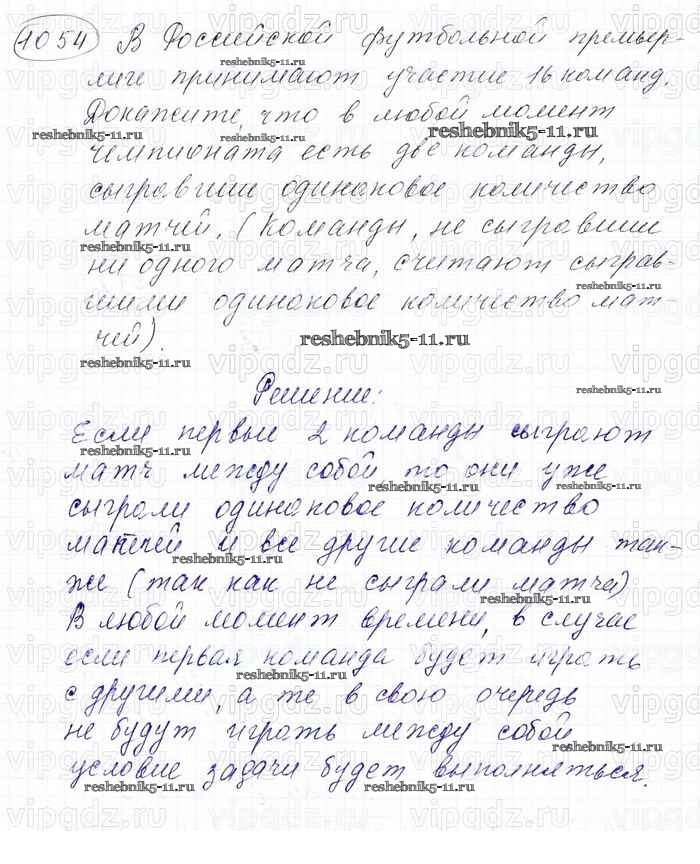 1054 В Российской футбольной премьер-
лиге принимают участие 16 команд.
Докажите, что в любой момент
чемпионата есть две команды,
сыгравшие одинаковое количество
матчей. (Команды, не сыгравшие
ни одного матча, считают сыграв-
шими одинаковое количество мат-
чей).
Решение:
Если первые 2 команды сыграют
матч между собой то они уже
сыграли одинаковое количество
матчей и все другие команды так-
же (так как не сыграли матчи)
В любой момент времени, в случае
если первая команда будет играть
с другими, а те в свою очередь
не будут играть между собой
условие задачи будет выполняться.
reshebnik5-11.ru
vipgdz.ru